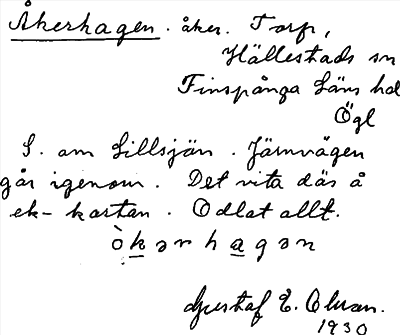 Åkerhagen. åker. Torp,
Hällestads sn
Finspånga Läns hd
Ögl
S. om Lillsjön. Järnvägen
går igenom. Det vita däs å
ek-kartan. Odlat allt.
òkərhagən
Gustaf E. Olsson.
1930